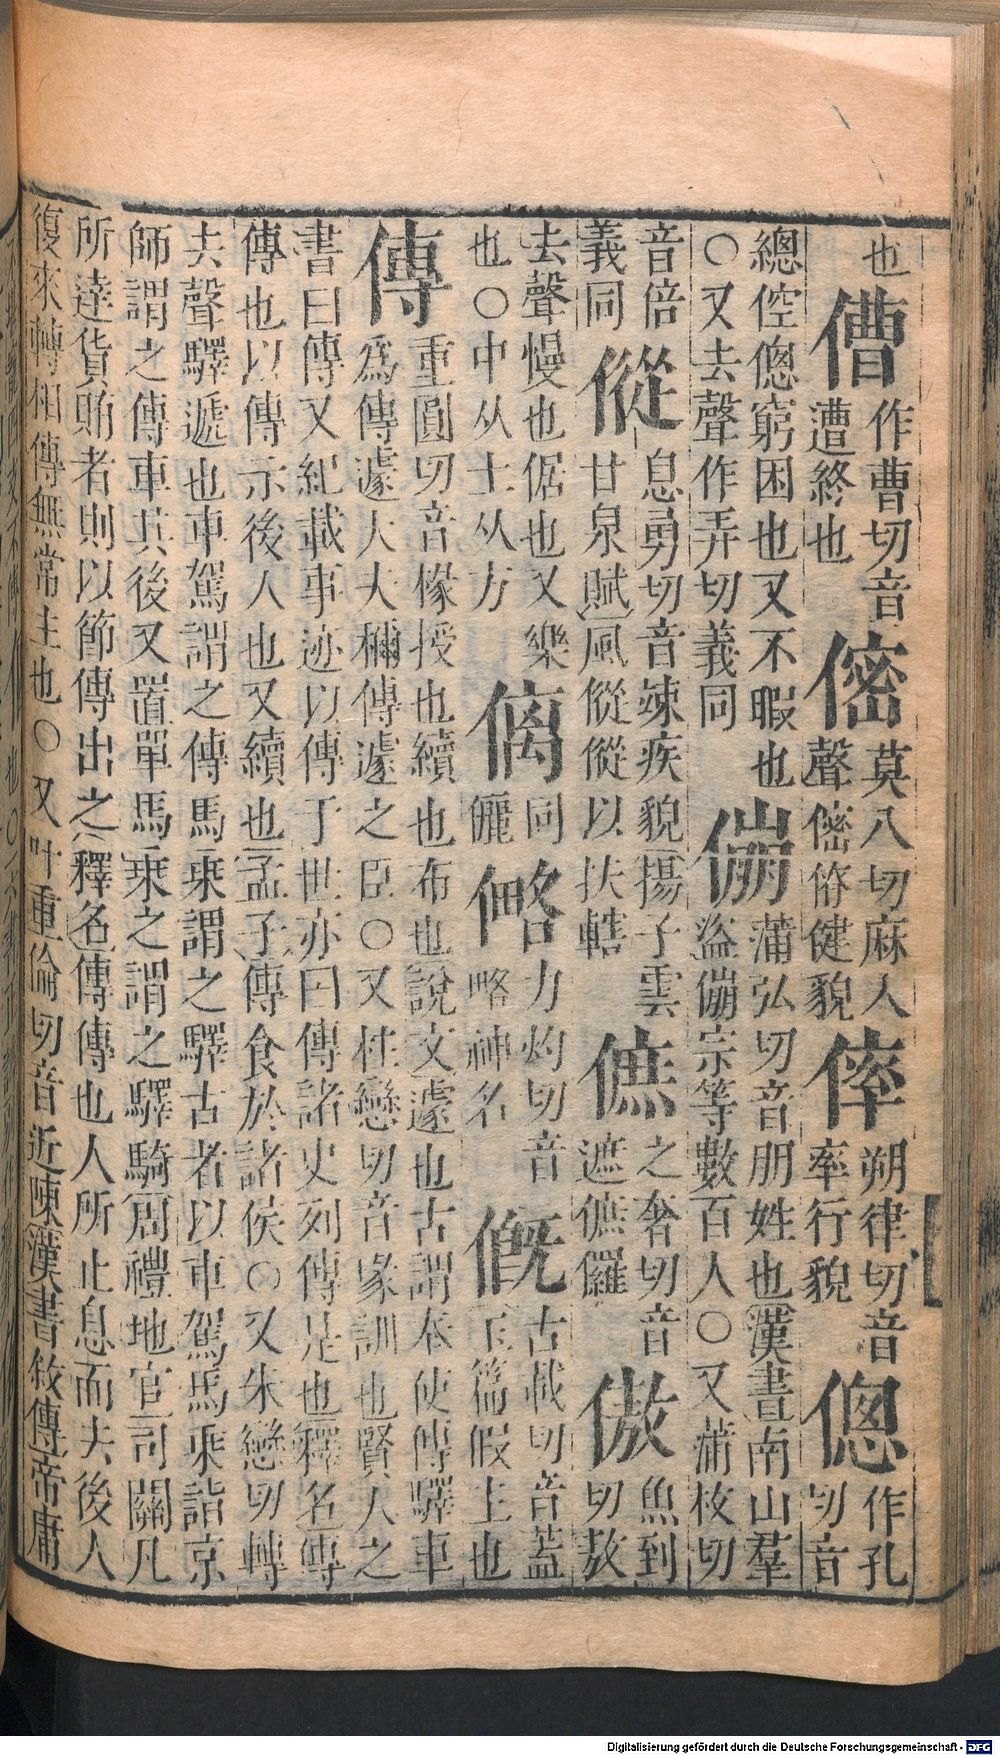 也
傮 作曹切音
遭終也
莫八切麻入
聲 健貌
朔律切音
率行貌
傯 作孔
切音
總倥傯窮困也又不暇也
○又去聲作弄切義同
傰 蒲弘切音朋姓也漢書南山羣
盜傰宗等數百人○又蒲枚切
音倍
義同
傱 息勇切音竦疾貌揚子雲
甘泉賦風傱傱以扶轄
之奢切音
遮 儸
傲 魚到
切敖
去聲慢也倨也又樂
也○中从士从方
同
儷
力灼切音
略神名
古裁切音蓋
玉篇假主也
傳 重圓切音椽授也續也布也說文遽也古謂奉使傳驛車
為傳遽大夫稱傳遽之臣○又柱戀切音彖訓也賢人之
書曰傳又紀載事迹以傳于世亦曰傳諸史列傳是也釋名傳
傳也以傳示後人也又續也孟子傳食於諸侯○又朱戀切轉
去聲驛遞也車駕謂之傳馬乘謂之驛古者以車駕馬乘詣京
師謂之傳車其後又置單馬乘之謂之驛騎周禮地官司關凡
所達貨賄者則以節傳出之釋名傳傳也人所止息而去後人
復來轉相傳無常主也○又叶重倫切音近陳漢書敘傳帝庸
Digitalisierung gefördert durch die Deutsche Forschungsgemeinschaft - DFG